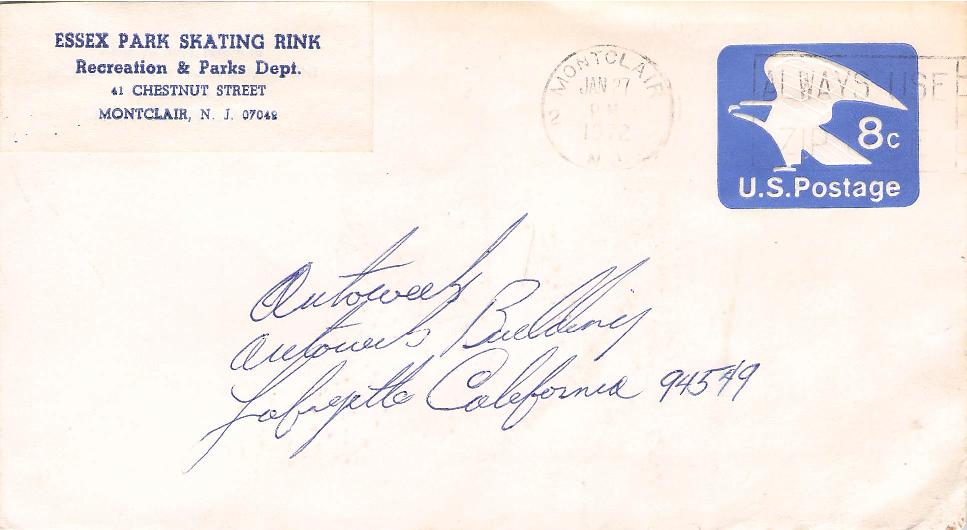 ESSEX PARK SKATING RINK
Recreation & Parks Dept.
41 CHESTNUT STREET
MONTCLAIR, N. J. 07042
MONTCLAIR
JAN 27
PM
1972
N.J.
2
ALWAYS USE
ZIP CODE
8c
U.S.Postage
Autoweek
Autoweek Building
Lafayette California 94549